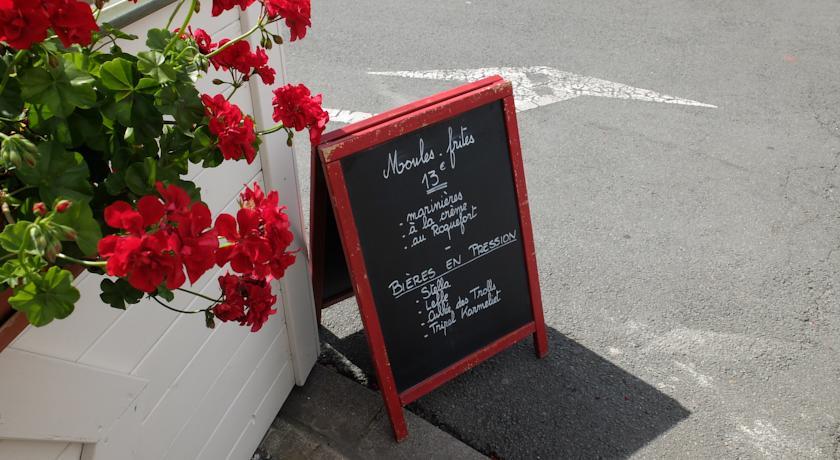 Moules-frites
13€
- marinières
- à la crème
- au Roquefort
-
BIÈRES EN PRESSION
- Stella
- Leffe
- Cuvée des Trolls
- Tripel Karmeliet